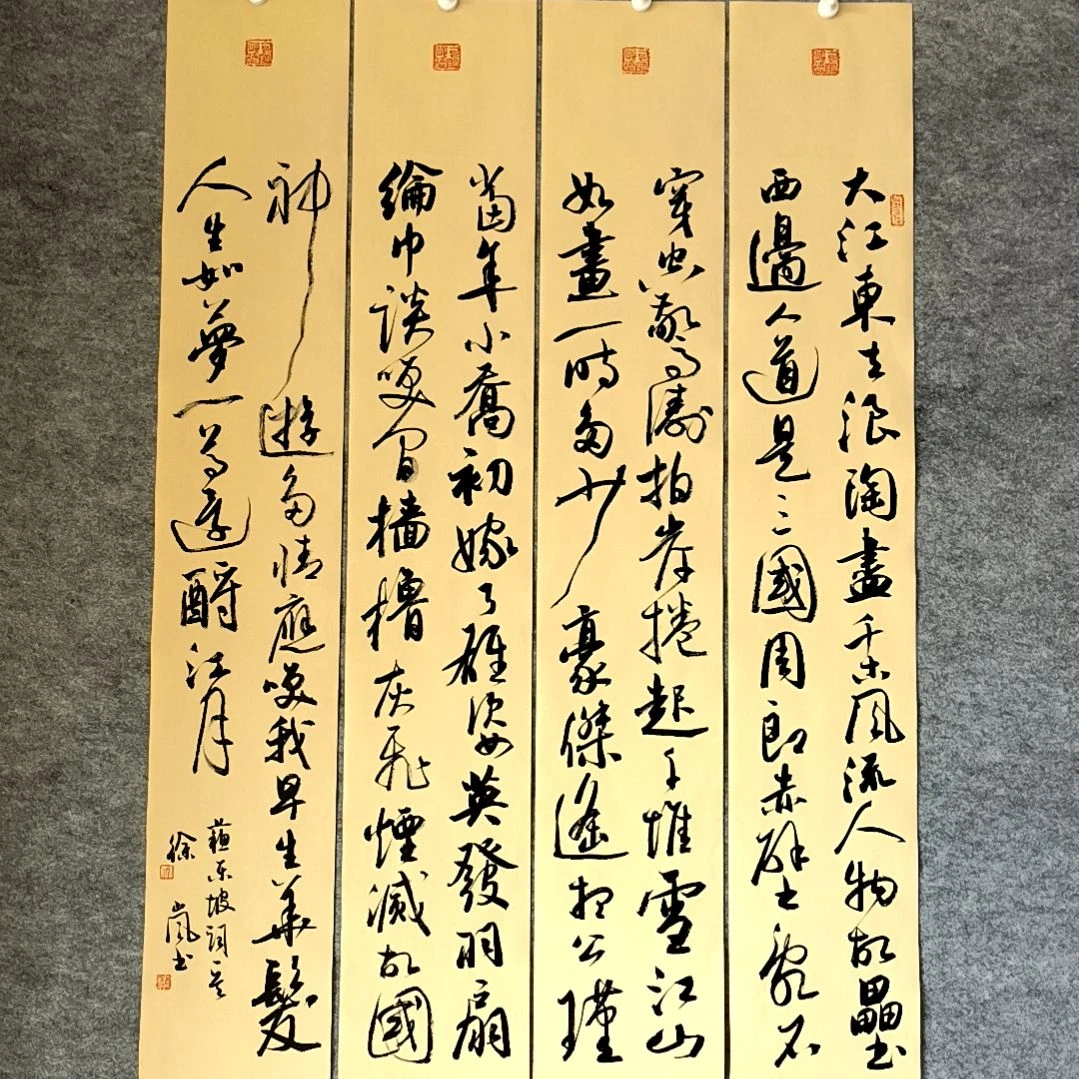 大江東去浪淘盡千古風流人物故壘
西邊人道是三國周郎赤壁亂石
穿空驚濤拍岸捲起千堆雪江山
如畫一時多少豪傑遙想公瑾
當年小喬初嫁了雄姿英發羽扇
綸巾談咲間檣櫓灰飛煙滅故國
神遊多情應咲我早生華髮
人生如夢一尊還酹江月
蘇東坡詞
徐嵐書